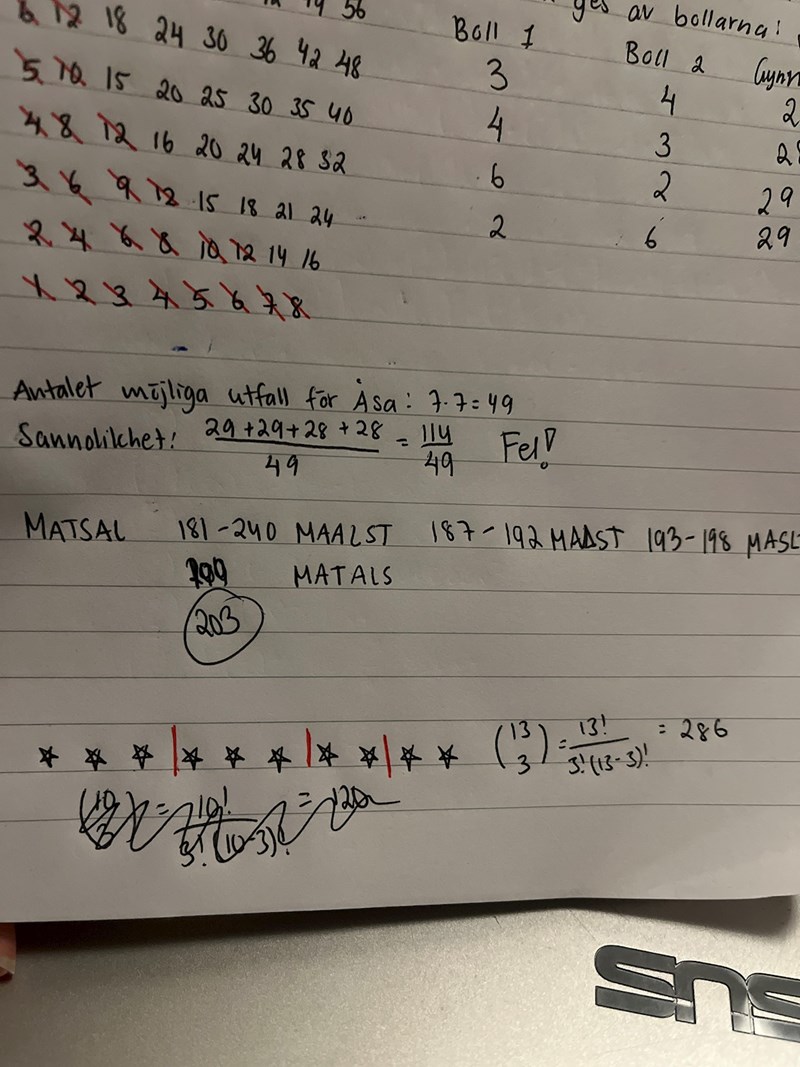 14 56
6 12 18 24 30 36 42 48
5 10 15 20 25 30 35 40
4 8 12 16 20 24 28 32
3 6 9 12 15 18 21 24
2 4 6 8 10 12 14 16
1 2 3 4 5 6 7 8
ges av bollarna:
Boll 1 Boll 2
3 4 2
4 3 28
6 2 29
2 6 29
Antalet möjliga utfall för Åsa: 7·7=49
Sannolikhet: 29+29+28+28 / 49 = 114 / 49 Fel!
MATSAL 181-240 MAALST 187-192 MAAST 193-198 MASL
199 MATALS
203
(13 3) = 13! / 3!(13-3)! = 286
(10 3) = 10! / 3!(10-3)! = 120
SUS